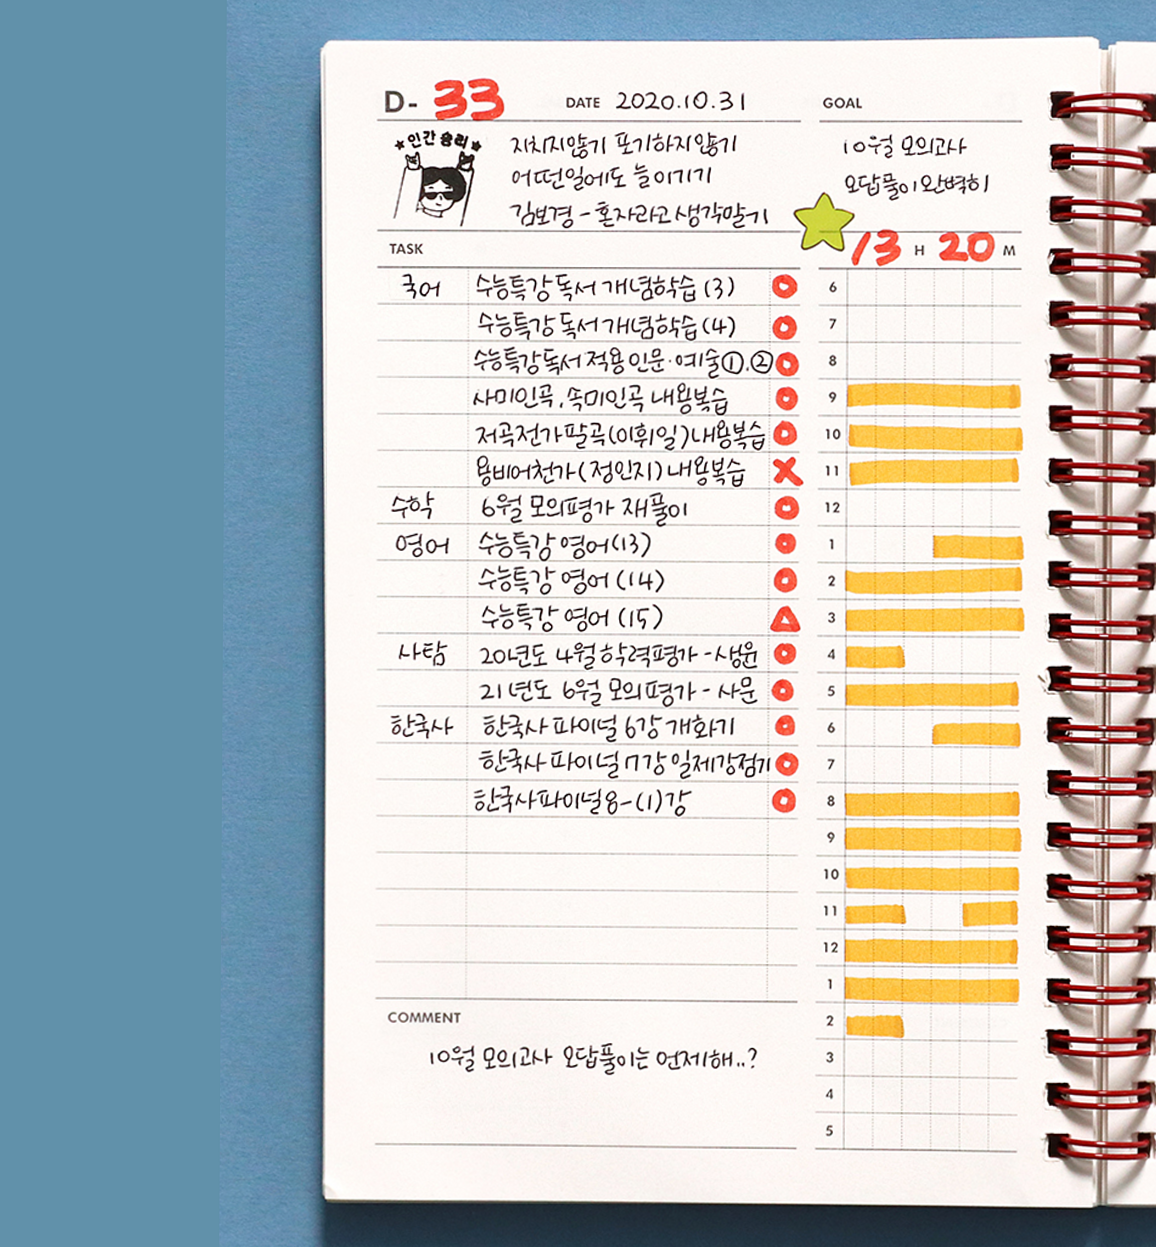 D- 33 DATE 2020.10.31
★인간 승리★
지치지않기 포기하지않기
어떤일에도 늘 이기기
김보경 - 혼자라고 생각말기
GOAL
10월 모의고사
오답풀이 완벽히
TASK
국어 수능특강 독서 개념학습 (3)
수능특강 독서 개념학습 (4)
수능특강 독서 적용 인문·예술①.②
사미인곡, 속미인곡 내용복습
저곡전가팔곡(이휘일)내용복습
용비어천가(정인지)내용복습
수학 6월 모의평가 재풀이
영어 수능특강 영어(13)
수능특강 영어 (14)
수능특강 영어 (15)
사탐 20년도 4월 학력평가 - 생윤
21년도 6월 모의평가 - 사문
한국사 한국사 파이널 6강 개화기
한국사 파이널 7강 일제강점기
한국사파이널 8-(1)강
13 H 20 M
6
7
8
9
10
11
12
1
2
3
4
5
6
7
8
9
10
11
12
1
2
3
4
5
COMMENT
10월 모의고사 오답풀이는 언제해..?